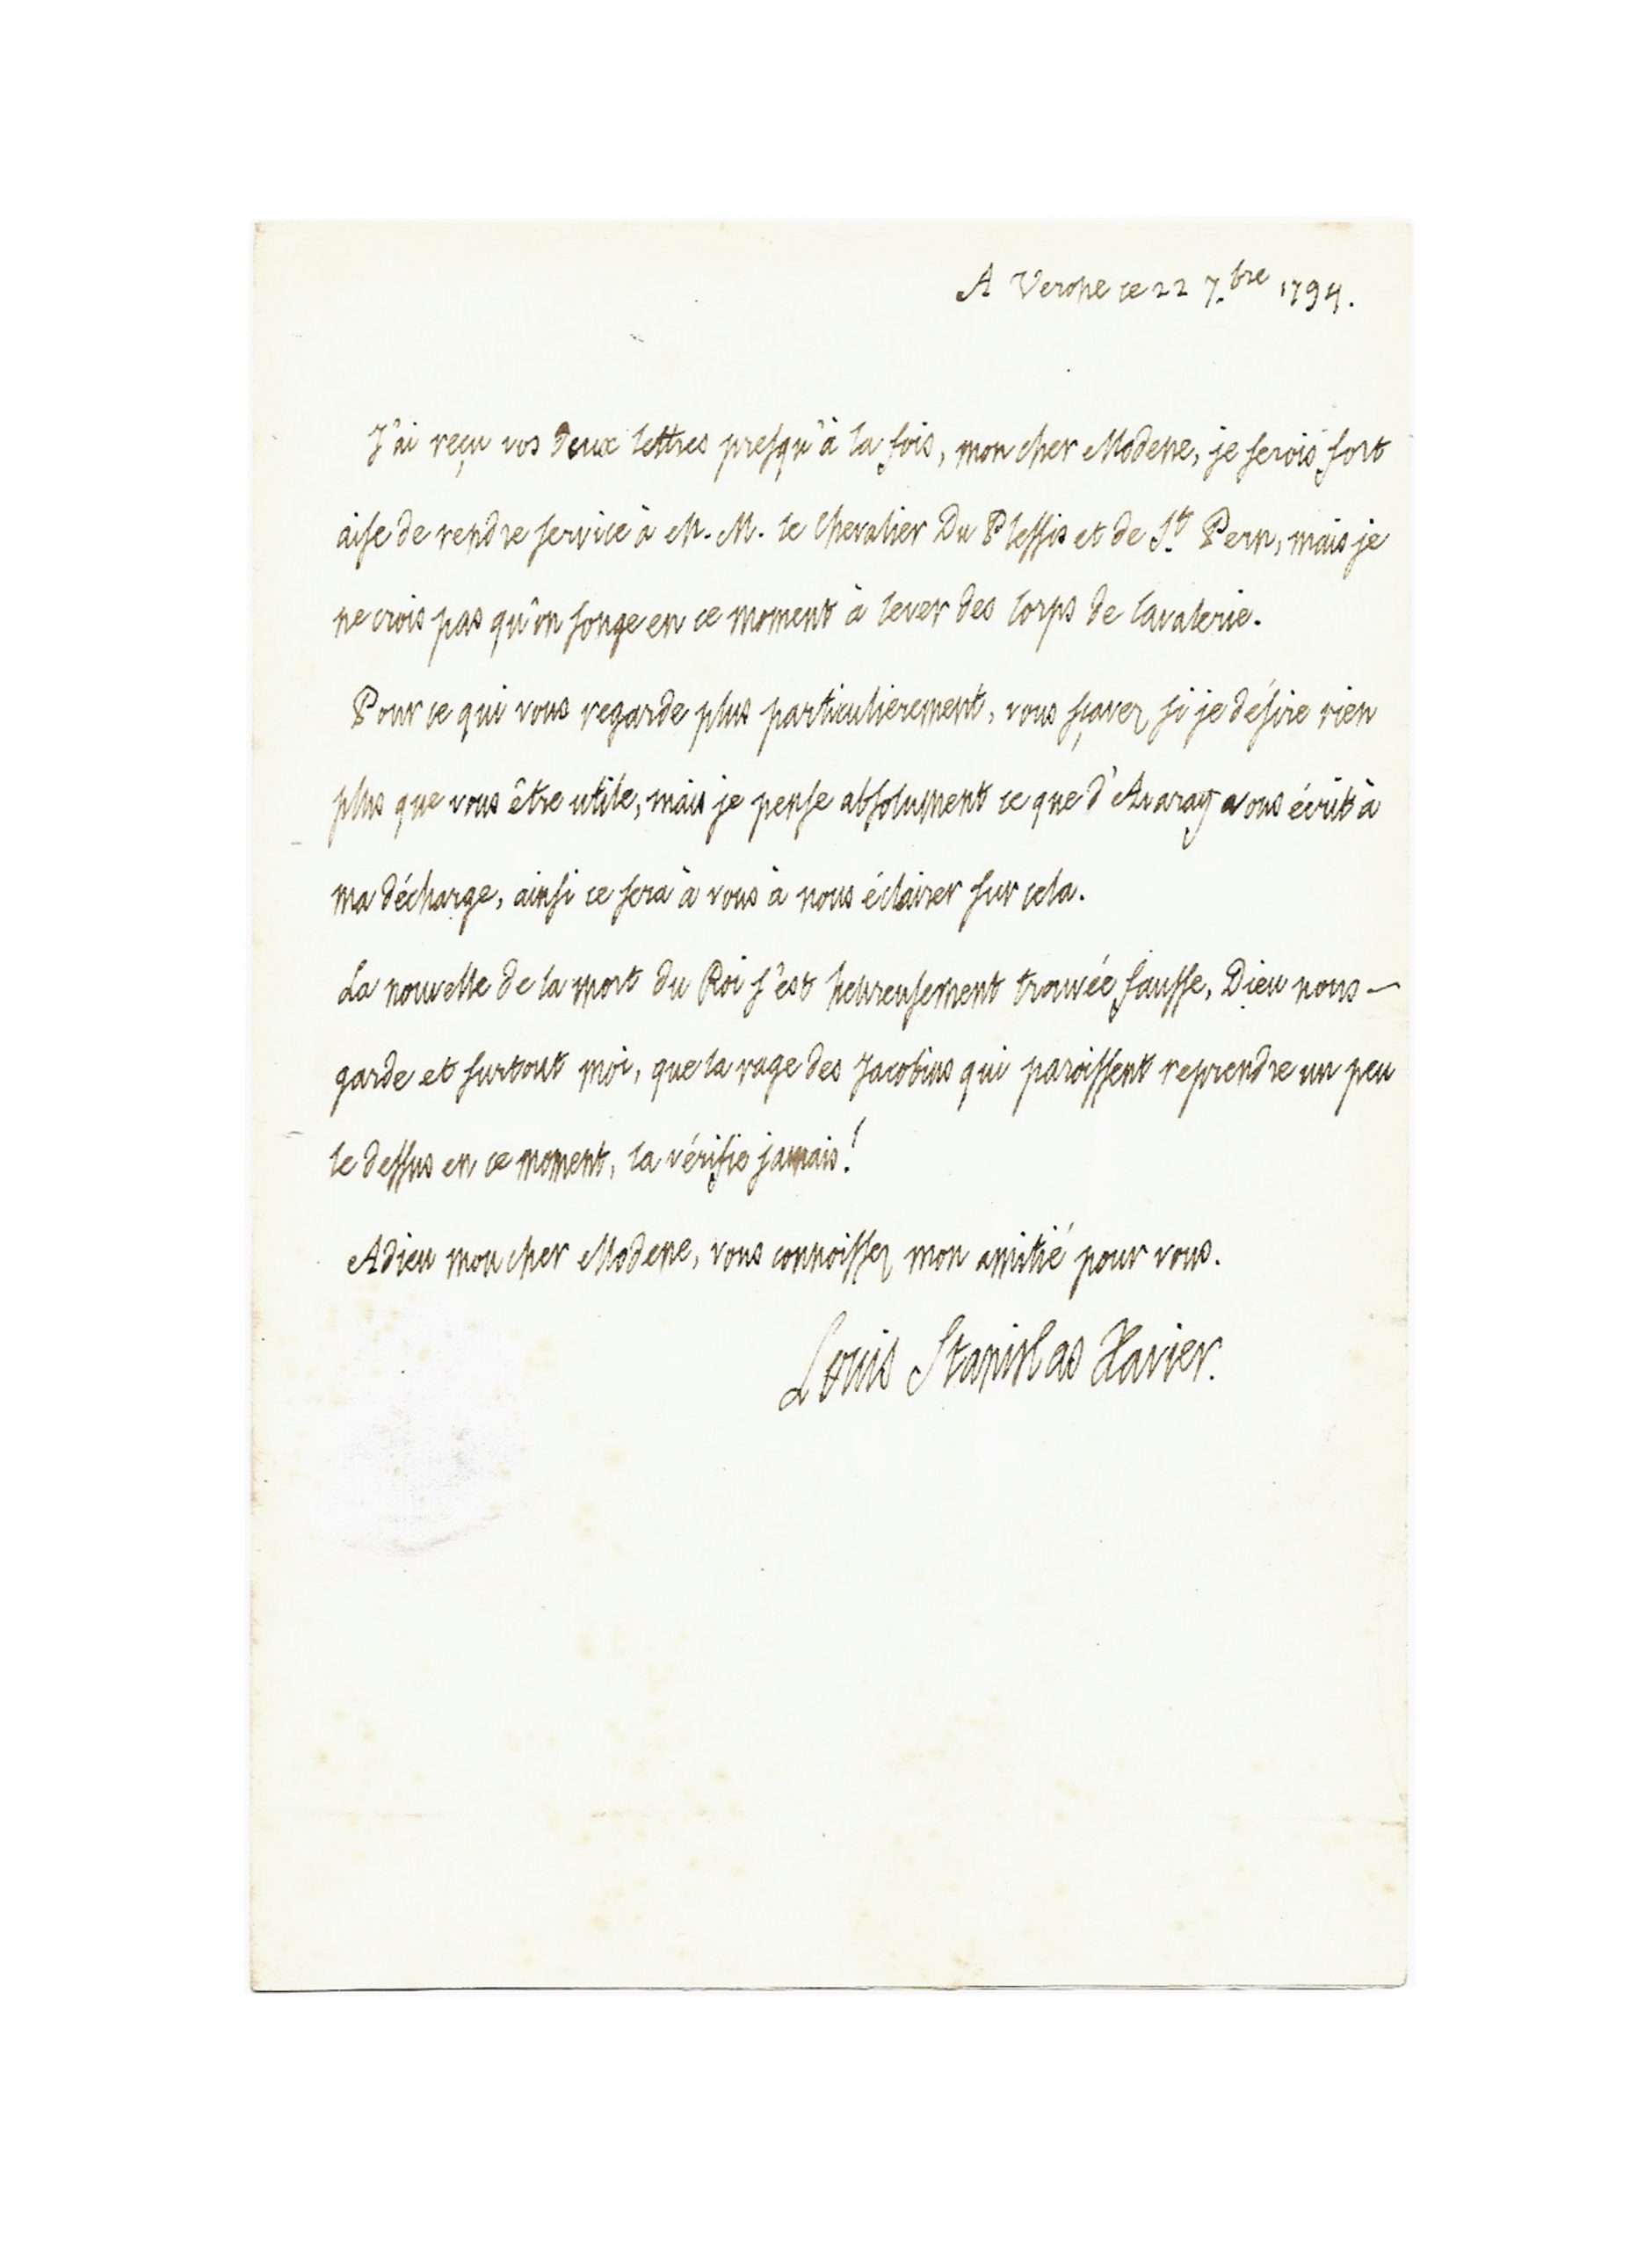 A Verone ce 22 7.bre 1794.
J'ai reçu vos deux lettres presqu'à la fois, mon cher Modene, je serois fort
aise de rendre service à M. M. le Chevalier Du Plessis et de St. Pern, mais je
ne crois pas qu'on songe en ce moment à lever des Corps de Cavalerie.
Pour ce qui vous regarde plus particulierement, vous sçavez si je désire rien
plus que vous être utile, mais je pense absolument ce que d'Avaray vous écrit à
ma décharge, ainsi ce sera à vous à nous éclairer sur cela.
La nouvelle de la mort du Roi s'est heureusement trouvée fausse, Dieu nous —
garde et surtout moi, que la rage des Jacobins qui paroissent reprendre un peu
le dessus en ce moment, la vérifie jamais!
Adieu mon cher Modene, vous connoissez mon amitié pour vous.
Louis Stanislas Xavier.